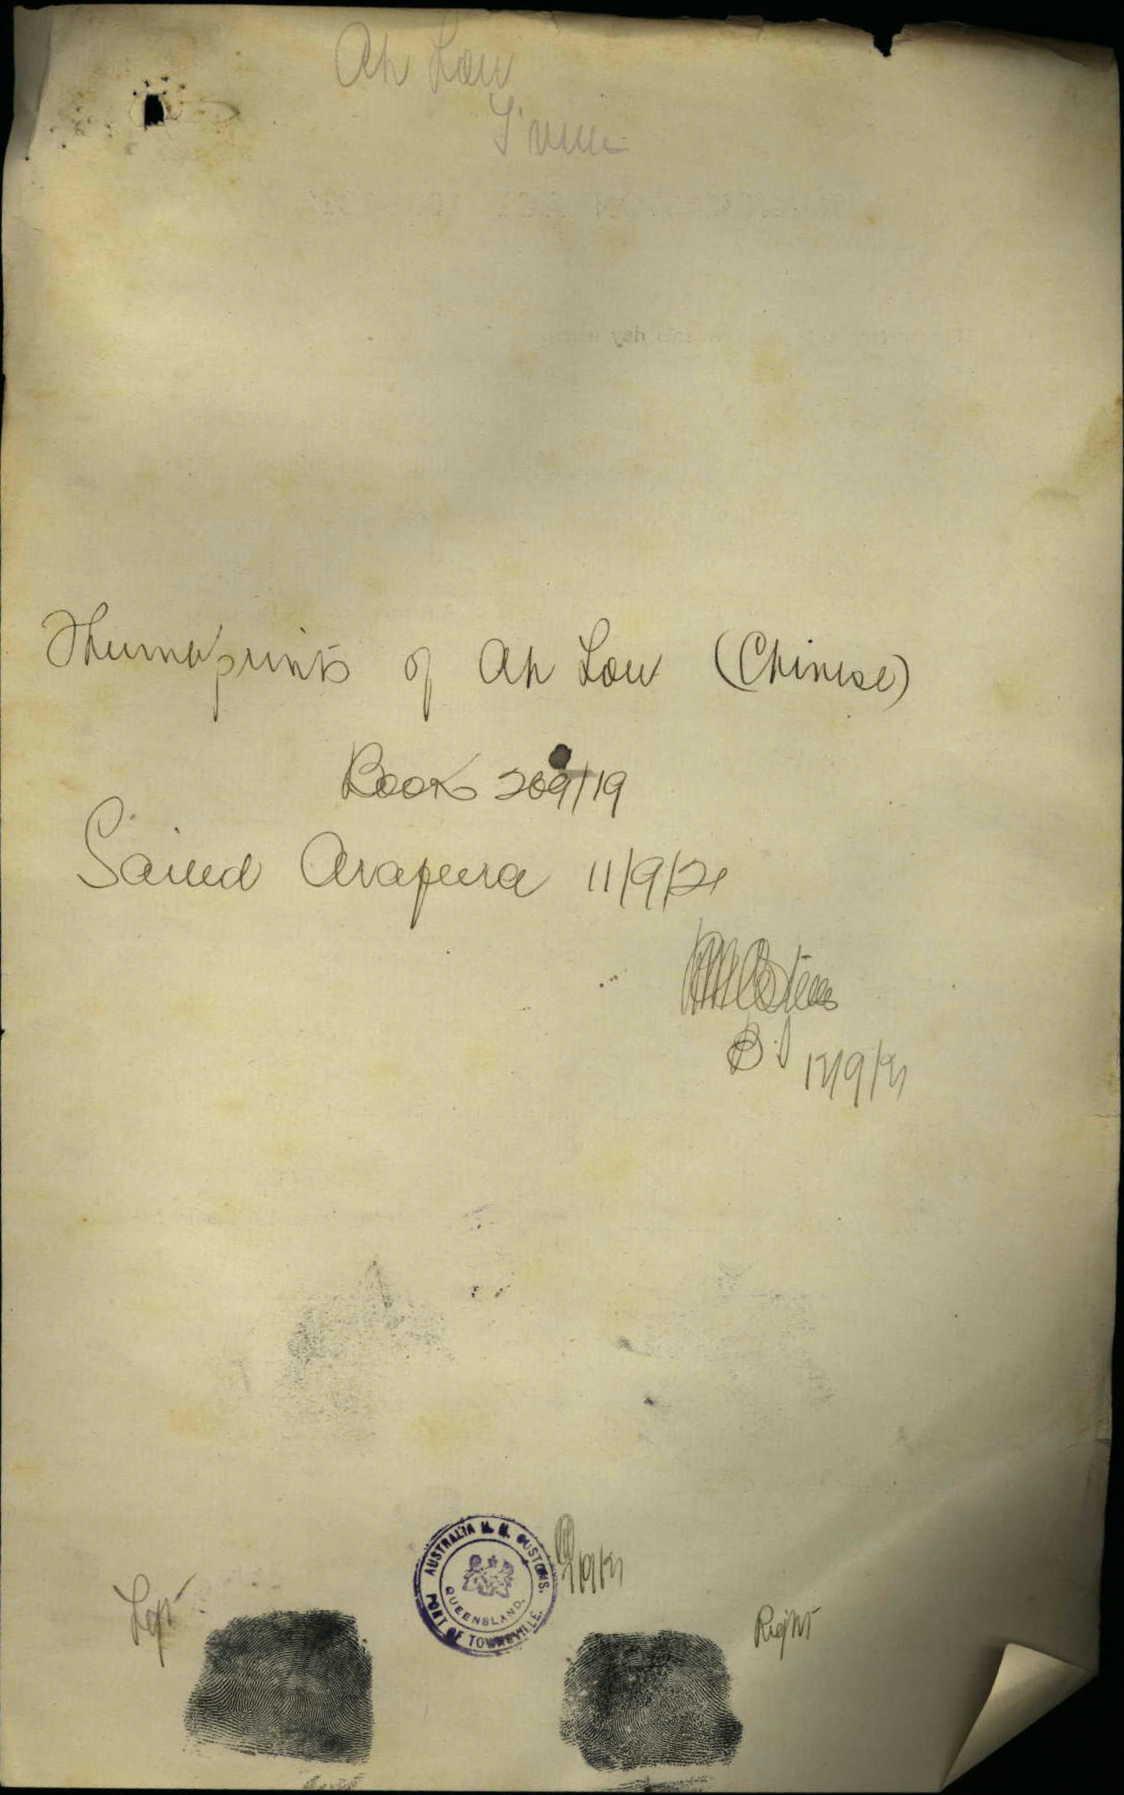 Ah Low
T'ville
Thumbprints of Ah Low (Chinese)
Book 269/19
Sailed Arafura 11/9/21
B.I 12/9/21
AUSTRALIA H. M. CUSTOMS.
QUEENSLAND.
PORT OF TOWNSVILLE.
9/9/21
Left
Right